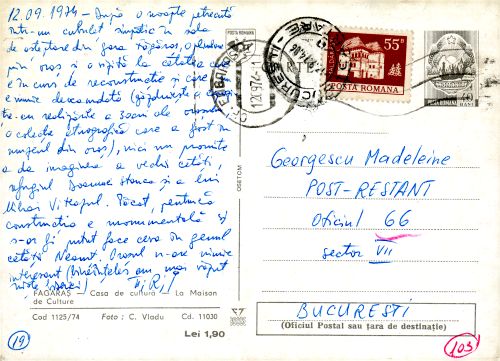 12.09.1974 – După o noapte petrecută
într-un cubulet simpatic în sala
de așteptare din gara Făgăraș, o plimbare
prin oraș și o vizită la cetatea ce
e în curs de reconstrucție și care
e numie deocamdată (găzduiește
o colecție etnografică care a fost în
muzeul din oraș), nici nu promite
a da imaginea a vechii cetăți,
refugiul Doamnei Stanca și a lui
Mihai Viteazul. Păcat, pentru că
construcția e monumentală și
s-ar fi putut face ceva în genul
cetății Neamț. Orașul n-are nimic
interesant (bineînțeles am mas văzut
niște biserici)
FĂGĂRAȘ – Casa de cultură – La Maison
de Culture
Cod 1125/74 Foto: C. Vladu Cd. 11030
Lei 1,90
19
OSETOM
POSTA ROMANA
12.9.74
BUCUREȘTI
55B
POSTA ROMANA
POSTA ROMANA
40
Georgescu Madeleine
POST-RESTANT
Oficiul 66
sector VII
BUCUREȘTI
(Oficiul Postal sau țara de destinație)
103